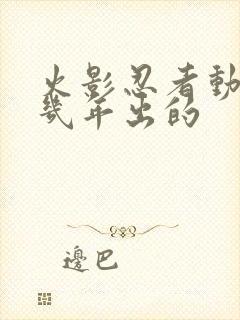 火影忍者動
幾年出的
邊巴